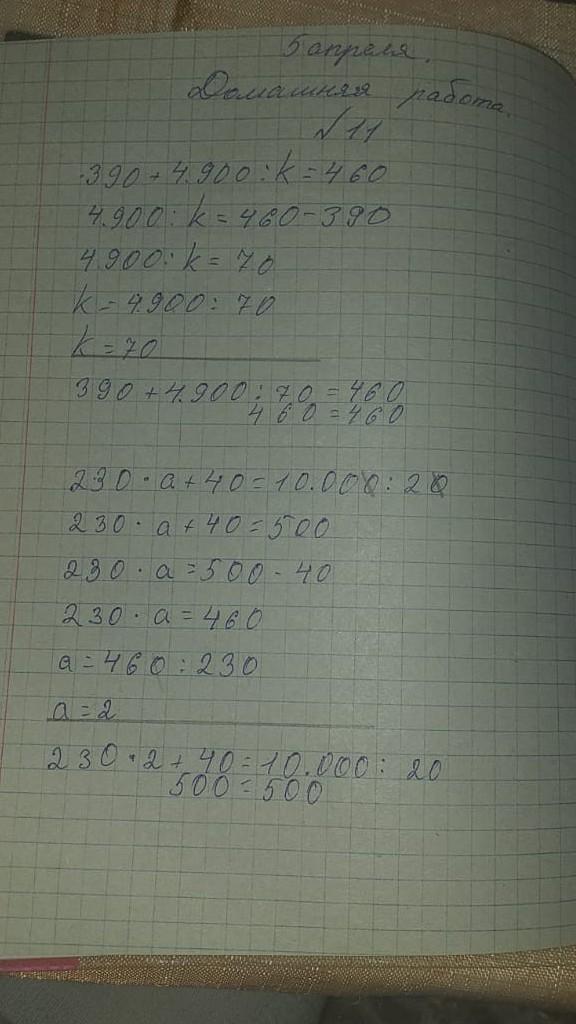 5 апреля.
Домашняя работа.
№11
390 + 4.900 : k = 460
4.900 : k = 460 - 390
4.900 : k = 70
k = 4.900 : 70
k = 70
390 + 4.900 : 70 = 460
460 = 460
230 · a + 40 = 10.000 : 20
230 · a + 40 = 500
230 · a = 500 - 40
230 · a = 460
a = 460 : 230
a = 2
230 · 2 + 40 = 10.000 : 20
500 = 500